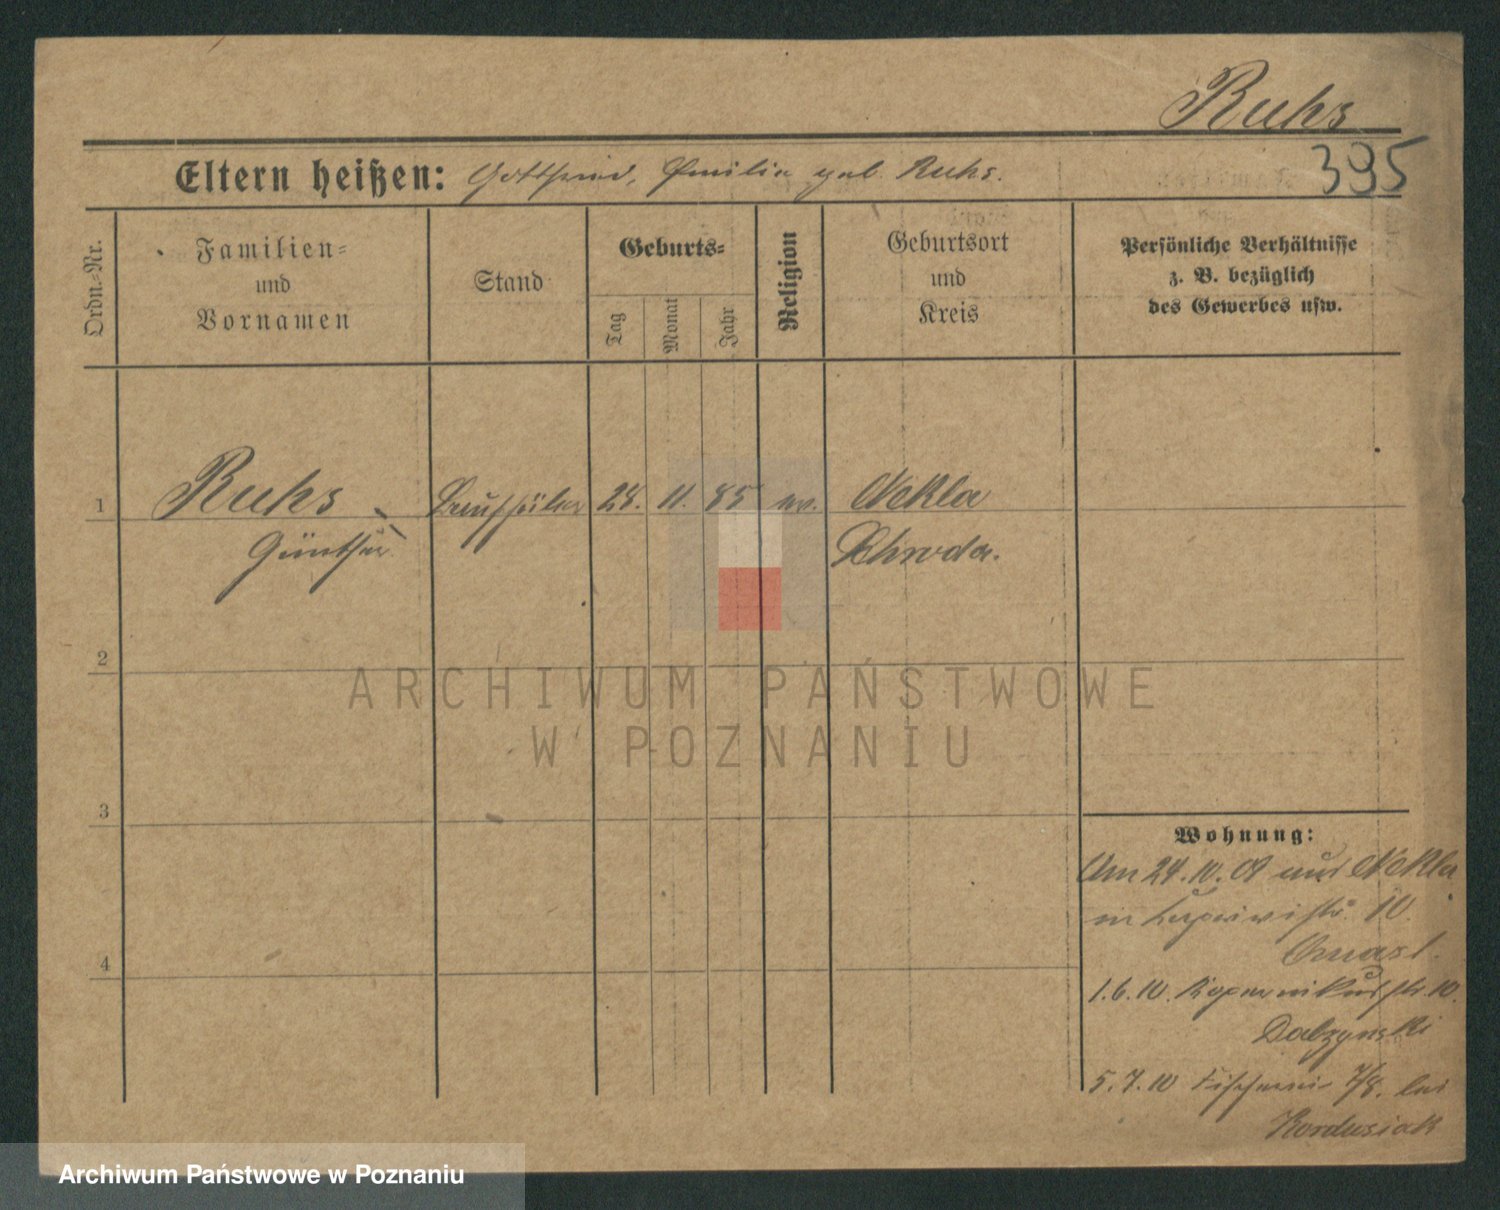 Ruhs
395
Eltern heißen: Gottfried, Emilie geb. Ruhs.
Ordn.-Nr.
Familien-
und
Vornamen
Stand
Geburts-
Tag
Monat
Jahr
Religion
Geburtsort
und
Kreis
Persönliche Verhältnisse
z. B. bezüglich
des Gewerbes usw.
1
Ruhs
28. 11. 85 ev. Nekla
Günther
Schroda.
2
ARCHIWUM PAŃSTWOWE
W POZNANIU
3
Wohnung:
Am 24.10.09 aus Nekla
in 10.
4
1.6.10. Kopernikusstr. 10.
Dabzynski
5.7.10 Fischerei 7/8. bei
Kordusiak
Archiwum Państwowe w Poznaniu